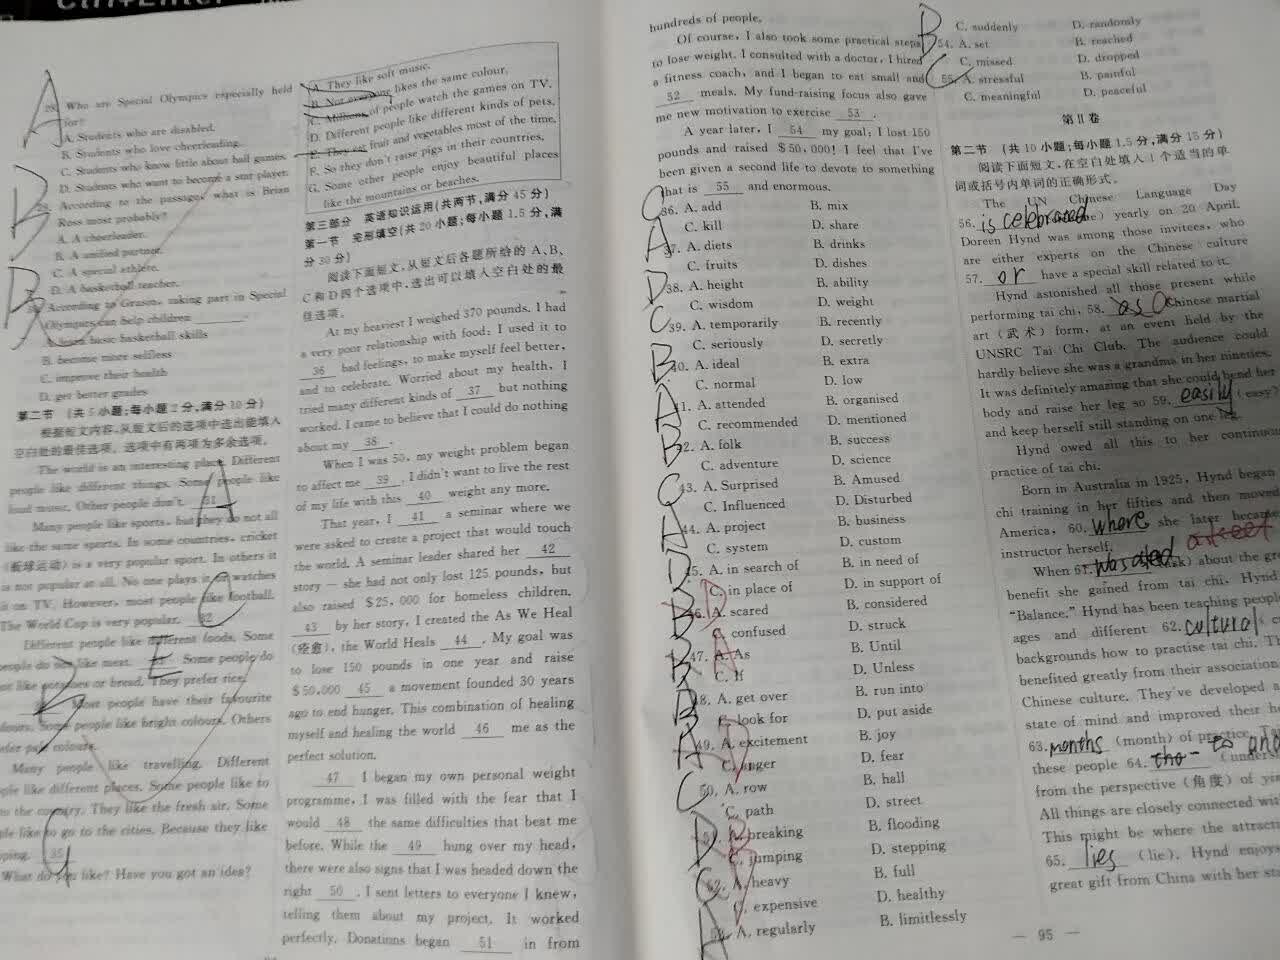 28. Who are Special Olympics especially held
for?
A. Students who are disabled.
B. Students who love cheerleading.
C. Students who know little about ball games.
D. Students who want to become a star player.
29. According to the passage, what is Brian
Ross most probably?
A. A cheerleader.
B. A unified partner.
C. A special athlete.
D. A basketball teacher.
According to Grason, taking part in Special
Olympics can help children
A. learn basic basketball skills
B. become more selfless
C. improve their health
D. get better grades
第二节 (共5小题;每小题2分,满分10分)
根据短文内容,从短文后的选项中选出能填入
空白处的最佳选项。选项中有两项为多余选项。
The world is an interesting place. Different
people like different things. Some people like
loud music. Other people don't. 31
Many people like sports, but they do not all
like the same sports. In some countries, cricket
(板球运动) is a very popular sport. In others it
is not popular at all. No one plays it or watches
it on TV. However, most people like football.
The World Cup is very popular. 32
Different people like different foods. Some
people do not like meat. Some people do
not like potatoes or bread. They prefer rice.
Most people have their favourite
colours. Some people like bright colours. Others
prefer pale colours.
Many people like travelling. Different
people like different places. Some people like to
to the country. They like the fresh air. Some
people like to go to the cities. Because they like
shopping. 35
What do you like? Have you got an idea?
A. They like soft music.
B. Not everyone likes the same colour.
C. Millions of people watch the games on TV.
D. Different people like different kinds of pets.
E. They eat fruit and vegetables most of the time.
F. So they don't raise pigs in their countries.
G. Some other people enjoy beautiful places
like the mountains or beaches.
第三部分 英语知识运用(共两节,满分45分)
第一节 完形填空(共20小题;每小题1.5分,满
分30分)
阅读下面短文,从短文后各题所给的A、B、
C和D四个选项中,选出可以填入空白处的最
佳选项。
At my heaviest I weighed 370 pounds. I had
a very poor relationship with food: I used it to
36 bad feelings, to make myself feel better,
and to celebrate. Worried about my health, I
tried many different kinds of 37 but nothing
worked. I came to believe that I could do nothing
about my 38 .
When I was 50, my weight problem began
to affect me 39 . I didn't want to live the rest
of my life with this 40 weight any more.
That year, I 41 a seminar where we
were asked to create a project that would touch
the world. A seminar leader shared her 42
story — she had not only lost 125 pounds, but
also raised $25,000 for homeless children.
43 by her story, I created the As We Heal
(痊愈), the World Heals 44 . My goal was
to lose 150 pounds in one year and raise
$50,000 45 a movement founded 30 years
ago to end hunger. This combination of healing
myself and healing the world 46 me as the
perfect solution.
47 I began my own personal weight
programme, I was filled with the fear that I
would 48 the same difficulties that beat me
before. While the 49 hung over my head,
there were also signs that I was headed down the
right 50 . I sent letters to everyone I knew,
telling them about my project. It worked
perfectly. Donations began 51 in from
hundreds of people.
Of course, I also took some practical steps
to lose weight. I consulted with a doctor, I hired
a fitness coach, and I began to eat small and
52 meals. My fund-raising focus also gave
me new motivation to exercise 53 .
A year later, I 54 my goal: I lost 150
pounds and raised $50,000! I feel that I've
been given a second life to devote to something
that is 55 and enormous.
C
36. A. add B. mix
C. kill D. share
A
37. A. diets B. drinks
C. fruits D. dishes
D
38. A. height B. ability
C. wisdom D. weight
C
39. A. temporarily B. recently
C. seriously D. secretly
B
40. A. ideal B. extra
C. normal D. low
A
41. A. attended B. organised
C. recommended D. mentioned
B
42. A. folk B. success
C. adventure D. science
C
43. A. Surprised B. Amused
C. Influenced D. Disturbed
A
44. A. project B. business
C. system D. custom
D
45. A. in search of B. in need of
C. in place of D. in support of
B D
46. A. scared B. considered
C. confused D. struck
B A
47. A. As B. Until
C. If D. Unless
B
48. A. get over B. run into
C. look for D. put aside
A D
49. A. excitement B. joy
C. anger D. fear
C
50. A. row B. hall
C. path D. street
D B
51. A. breaking B. flooding
C. jumping D. stepping
C
52. A. heavy B. full
C. expensive D. healthy
A
53. A. regularly B. limitlessly
C. suddenly D. randomly
B
54. A. set B. reached
C. missed D. dropped
C
55. A. stressful B. painful
C. meaningful D. peaceful
第Ⅱ卷
第二节 (共10小题;每小题1.5分,满分15分)
阅读下面短文,在空白处填入1个适当的单
词或括号内单词的正确形式。
The UN Chinese Language Day
56. is celebrated yearly on 20 April.
Doreen Hynd was among those invitees, who
are either experts on the Chinese culture
57. or have a special skill related to it.
Hynd astonished all those present while
performing tai chi, 58. as a Chinese martial
art (武术) form, at an event held by the
UNSRC Tai Chi Club. The audience could
hardly believe she was a grandma in her nineties.
It was definitely amazing that she could bend her
body and raise her leg so 59. easily (easy)
and keep herself still standing on one leg.
Hynd owed all this to her continuous
practice of tai chi.
Born in Australia in 1925, Hynd began
chi training in her fifties and then moved
America, 60. where she later became
instructor herself.
When 61. was asked (ask) about the gr
benefit she gained from tai chi, Hynd
"Balance." Hynd has been teaching people
ages and different 62. cultural
backgrounds how to practise tai chi. Th
benefited greatly from their association
Chinese culture. They've developed a
state of mind and improved their he
63. months (month) of practice. Tai
these people 64. to (unders
from the perspective (角度) of yin
All things are closely connected with
This might be where the attract
65. lies (lie). Hynd enjoys
great gift from China with her stu
— 95 —